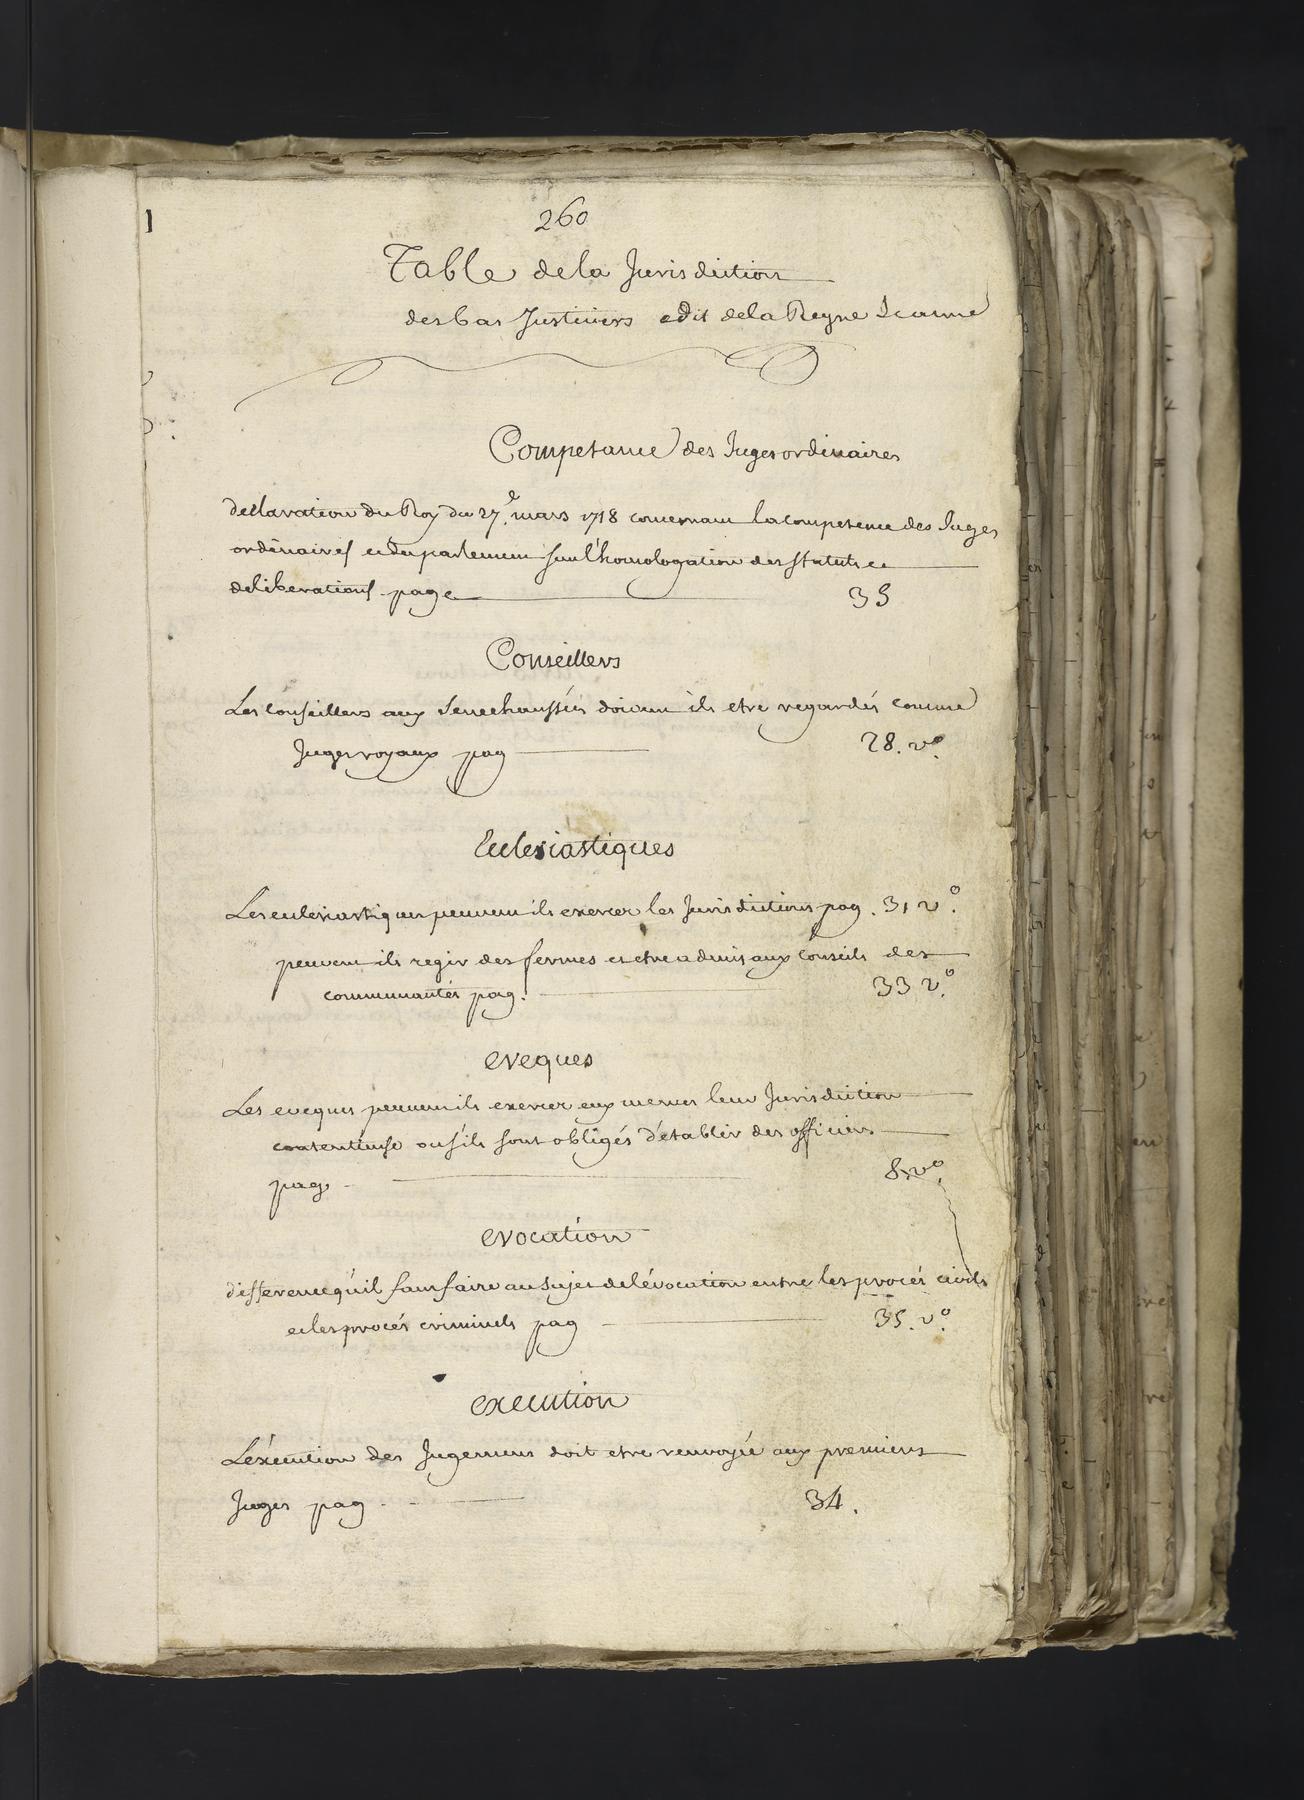 260
Table de la Jurisdiction
des bas Justiciers edit de la Reyne Jeanne
Competance des Juges ordinaires
declaration du Roy du 27.e mars 1718 concernant la competence des Juges
ordinaires et du parlement sur l'homologation des statuts et
deliberations page 35
Conseillers
Les conseillers aux Senechaussées doivent ils etre regardés comme
Juges royaux pag 28. vº.
Ecclesiastiques
Les ecclesiastiques peuvent ils exercer les Jurisdictions pag. 31 vº.
peuvent ils regir des fermes et etre admis aux conseils des
communautés pag. 33 vº.
eveques
Les eveques peuvent ils exercer eux memes leur Jurisdiction
contentieuse ou s'ils sont obligés d'établir des officiers
pag. 8 vº.
evocation
difference qu'il faut faire au sujet de lévocation entre les procés civils
et les procés criminels pag 35. vº.
execution
L'éxecution des Jugemens doit etre renvoyée aux premiers
Juges pag. 34.